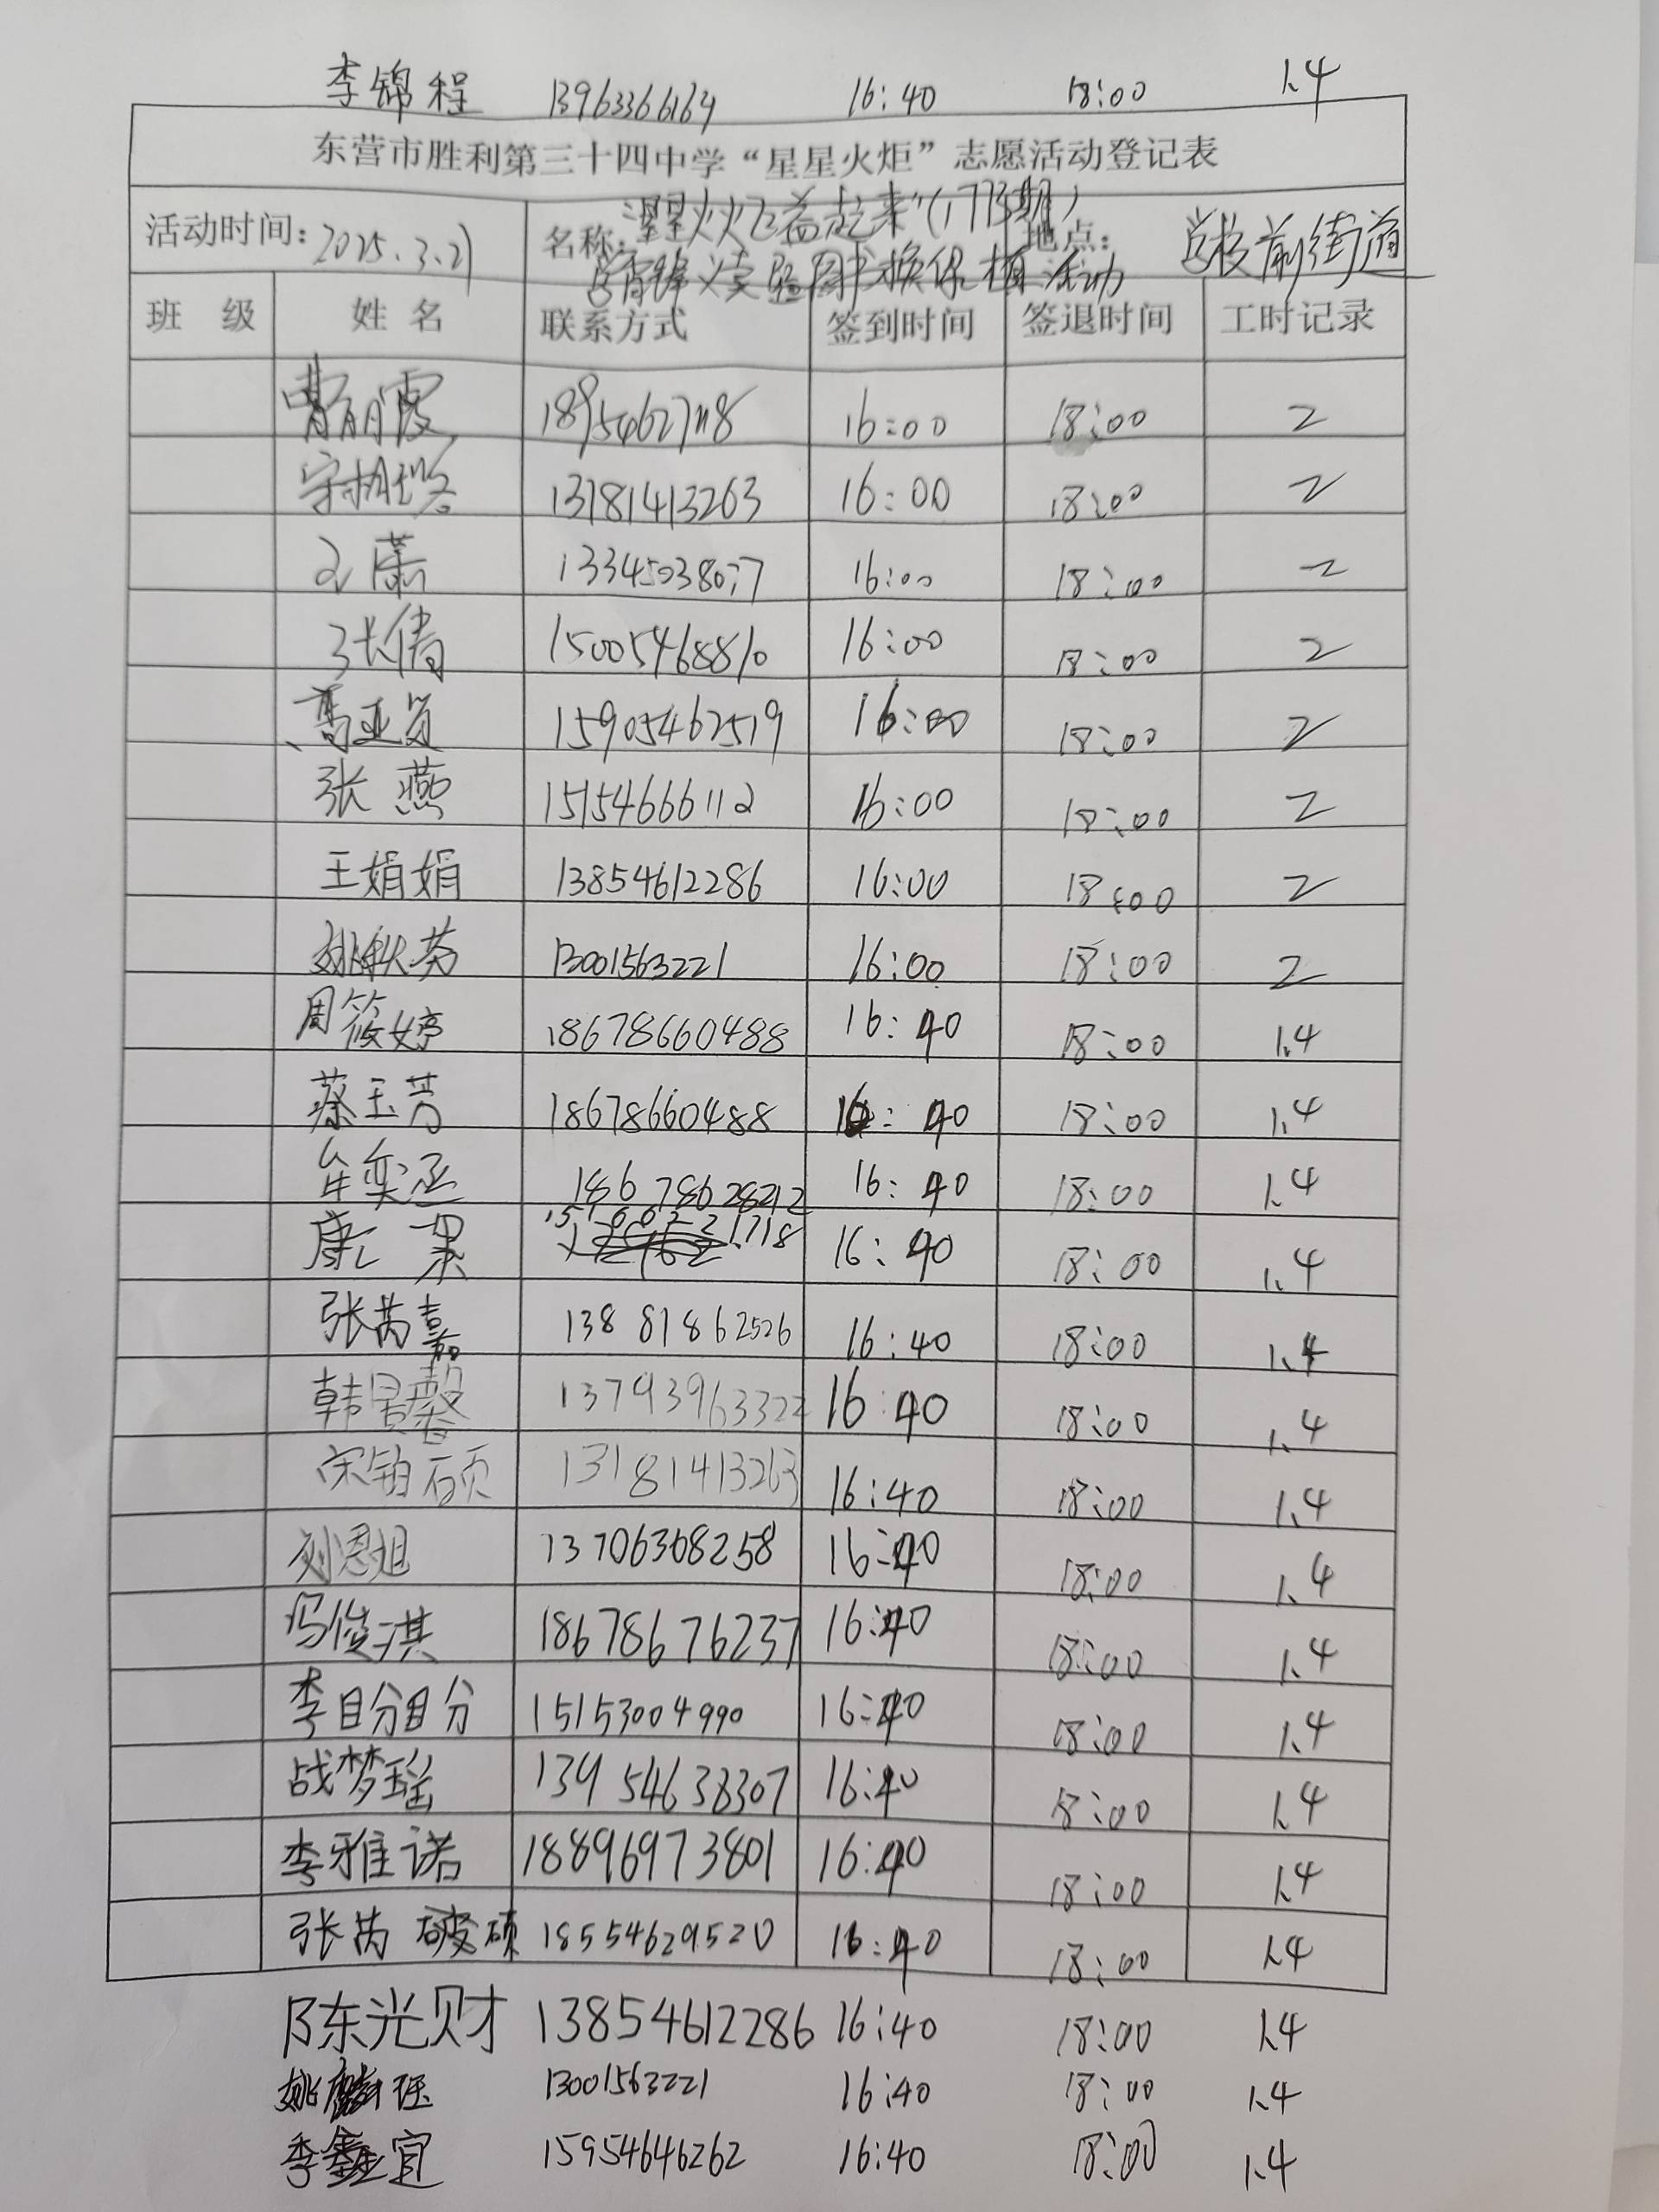 李锦程 13963366164 16:40 18:00 1.4
东营市胜利第三十四中学“星星火炬”志愿活动登记表
活动时间: 2025.3.21 名称: 益起来”(1773期) 地点: 学校前街道
图书换绿植活动
班 级 姓 名 联系方式 签到时间 签退时间 工时记录
霞 16:00 18:00 2
13181413263 16:00 18:00 2
萧 16:00 18:00 2
张倩 15005468810 16:00 18:00 2
15905462519 16:00 18:00 2
张燕 15154666112 16:00 18:00 2
王娟娟 13854612286 16:00 18:00 2
姚秋芳 13001563221 16:00 18:00 2
周筱婷 18678660488 16:40 18:00 1.4
蔡玉芳 18678660488 16:40 18:00 1.4
牟奕涵 16:40 18:00 1.4
康 16:40 18:00 1.4
张芮嘉 13881862526 16:40 18:00 1.4
韩昊馨 13793963322 16:40 18:00 1.4
宋铂硕 13181413263 16:40 18:00 1.4
刘恩旭 13706368258 16:40 18:00 1.4
冯俊淇 18678676237 16:40 18:00 1.4
李盼盼 15153004990 16:40 18:00 1.4
战梦瑶 13954638307 16:40 18:00 1.4
李雅诺 18896973801 16:40 18:00 1.4
张芮硕 18554629520 16:40 18:00 1.4
陈光财 13854612286 16:40 18:00 1.4
姚 13001563221 16:40 18:00 1.4
李鑫宜 15954646262 16:40 18:00 1.4